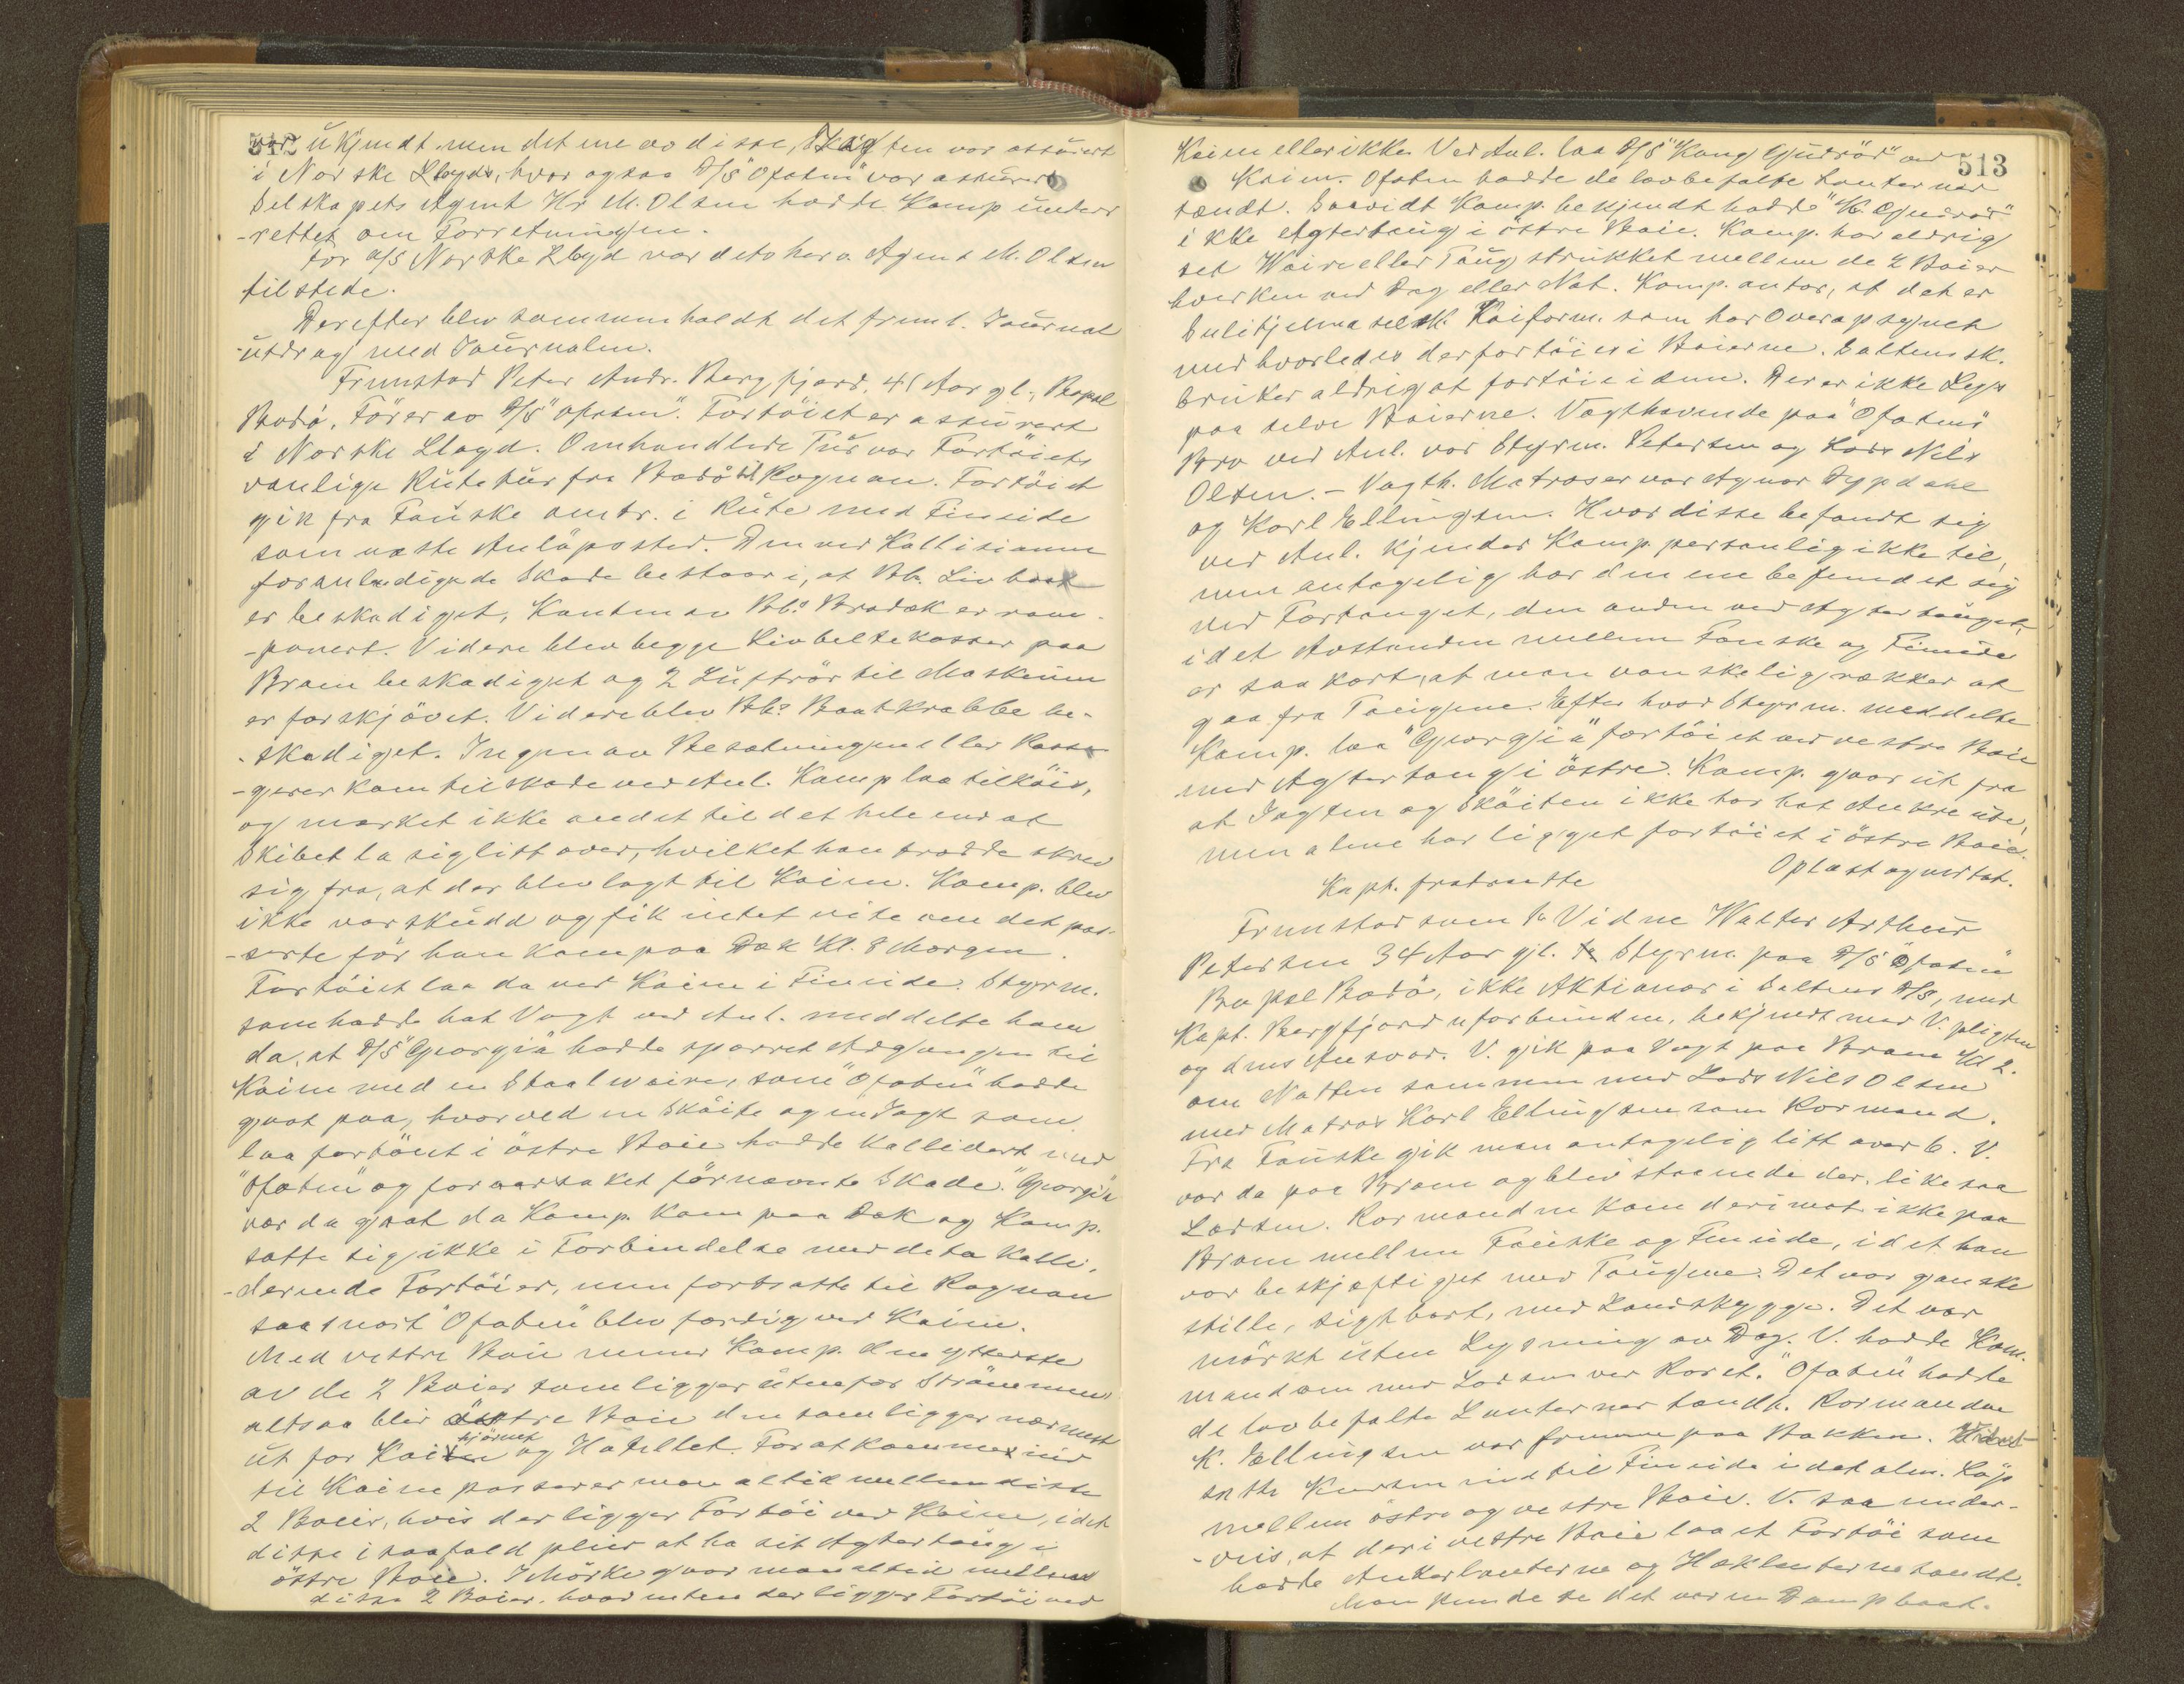 512
var ukjendt men det ene av disse, Jagten var assurert
i Norske Lloyds, hvor ogsaa D/S "Ofoten" var assurert
Selskapets Agent Hr M. Olsen hadde Komp under
-rettet om Forretningen.
For A/S Norske Lloyd var dets herv. Agent M. Olsen
tilstede.
Derefter blev sammenholdt det freml. Journal
-utdrag med Journalen.
Fremstod Peter Andr. Bergfjord, 41 Aar gl., Bopæl
Bodö, Förer av D/S "Ofoten". Fartöiet er assurert
i Norske Lloyd. Omhandlede Tur var Fartöiets
vanlige Rutetur fra Bodö til Rognan. Fartöiet
gik fra Fauske omtr. i Rute med Finneide
som næste Anlöpssted. Den ved Kollisionen
foranledigede Skade bestaar i, at Bb. Livbaat
er beskadiget, Kanten av Bb.s Brodæk er ram-
-ponert. Videre blev begge Livbeltekasser paa
Broen beskadiget og 2 Luftrör til Maskinen
er forskjövet. Videre blev Bb.s Baatkrabbe be-
-skadiget. Ingen av Besætningen eller Passa-
-gerer kom til skade ved Anl. Komp laa tilköis,
og mærket ikke andet til det hele end at
Skibet la sig litt over, hvilket han trodde skrev
sig fra, at der blev lagt til Kaien. Komp. blev
ikke varskudd og fik intet vite om det pas-
-serte för han kom paa Dæk Kl. 8 Morgen.
Fartöiet laa da ved Kaien i Finneide. Styrm.
som hadde hat Vagt ved Anl. meddelte ham
da, at D/S "Georgia" hadde sperret Adgangen til
Kaien med en Staalwaire, som "Ofoten" hadde
gaat paa, hvorved en Sköite og en Jagt som
laa fortöiet i östre Boie hadde kollidert med
"Ofoten" og foraarsaket förnævnte Skade. "Georgia"
var da gaat da Komp. kom paa Dæk og Komp.
satte sig ikke i Forbindelse med de to kolli-
-derende Fartöier, men fortsatte til Rognan
saasnart "Ofoten" blev færdig ved Kaien.
Med vestre Boie mener Komp. den ytterste
av de 2 Boier som ligger utenfor Strömmen
altsaa blir östre Boie den som ligger nærmest
ut for Kaihjörnet og Hotellet. For at komme ind
til Kaien passerer man altid mellem disse
2 Boier, hvis der ligger Fartöi ved Kaien, idet
disse i saafald pleier at ha sit Agtertaug i
östre Boie. I Mörke gaar man altid mellem
disse 2 Boier, hvad enten der ligger Fartöi ved
513
Kaien eller ikke. Ved Anl. laa D/S "Kong Gudröd" ved
Kaien. Ofoten hadde de lovbefalte Lanterner
tændt. Saavidt Komp. bekjendt hadde "K. Gudröd"
ikke Agtertaug i östre Boie. Komp. har aldrig
set Waire eller Taug strukket mellem de 2 Boier
hverken ved Dag eller Nat. Komp. antar, at det er
Sulitjelma selsk. Kaiform. som har Overopsynet
med hvorledes der fortöies i Boierne. Saltens sk.
bruker aldrig at fortöie i dem. Der er ikke Lys
paa selve Boierne. Vagthavende paa "Ofotens"
Bro ved Anl. var Styrm. Petersen og Lods Nils
Olsen. - Vagth. Matroser var Agnar Dypdahl
og Karl Ellingsen. Hvor disse befandt sig
ved Anl. kjender Komp. personlig ikke til,
men antagelig har den ene befundet sig
ved Fortauget, den anden ved Agtertauget,
idet Avstanden mellem Fauske og Finneide
er saa kort, at man vanskelig rækker at
gaa fra Taugene. Efter hvad Styrm. meddelte
Komp. laa "Georgia" fortöiet ved vestre Boie
med Agtertaug i östre. Komp. gaar ut fra
at Jagten og Sköiten ikke har hat Ankre ute,
men alene har ligget fortöiet i östre Boie.
Oplæst og vedtat.
Kapt. fratraadte
Fremstod som 1. Vidne Walter Arthur
Petersen 34 Aar gl. Styrm. paa D/S "Ofoten"
Bopæl Bodö, ikke Aktionær i Saltens D/S, med
Kapt. Bergfjord uforbunden, bekjendt med V. pligten
og dens Ansvar. V. gik paa Vagt paa Broen Kl 2.
om Natten sammen med Lods Nils Olsen
med Matros Karl Ellingsen som Rormand.
Fra Fauske gik man antagelig litt over 6. V.
var da paa Broen og blev staaende der, likesaa
Lodsen. Rormanden kom derimot ikke paa
Broen mellem Fauske og Finneide, idet han
var beskjæftiget med Taugene. Det var ganske
stille, sigtbart, med Landskygge. Det var
mörkt uten Lysning av Dag. V. hadde Kom-
mandoen med Lodsen ved Roret. "Ofoten" hadde
de lovbefalte Lanterner tændt. Rormanden
K. Ellingsen var fremme paa Bakken.
satte Kursen ind til Finneide i det alm. Löp
mellem östre og vestre Boie. V. saa under-
-veis, at der i vestre Boie laa et Fartöi som
hadde Ankerlanterne og Hæklanterne tændt.
Man kunde se det var en Dampbaad.